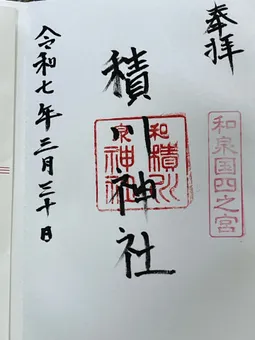 奉拝
和泉国四之宮
積川神社
和泉積川神社
令和七年三月三十日